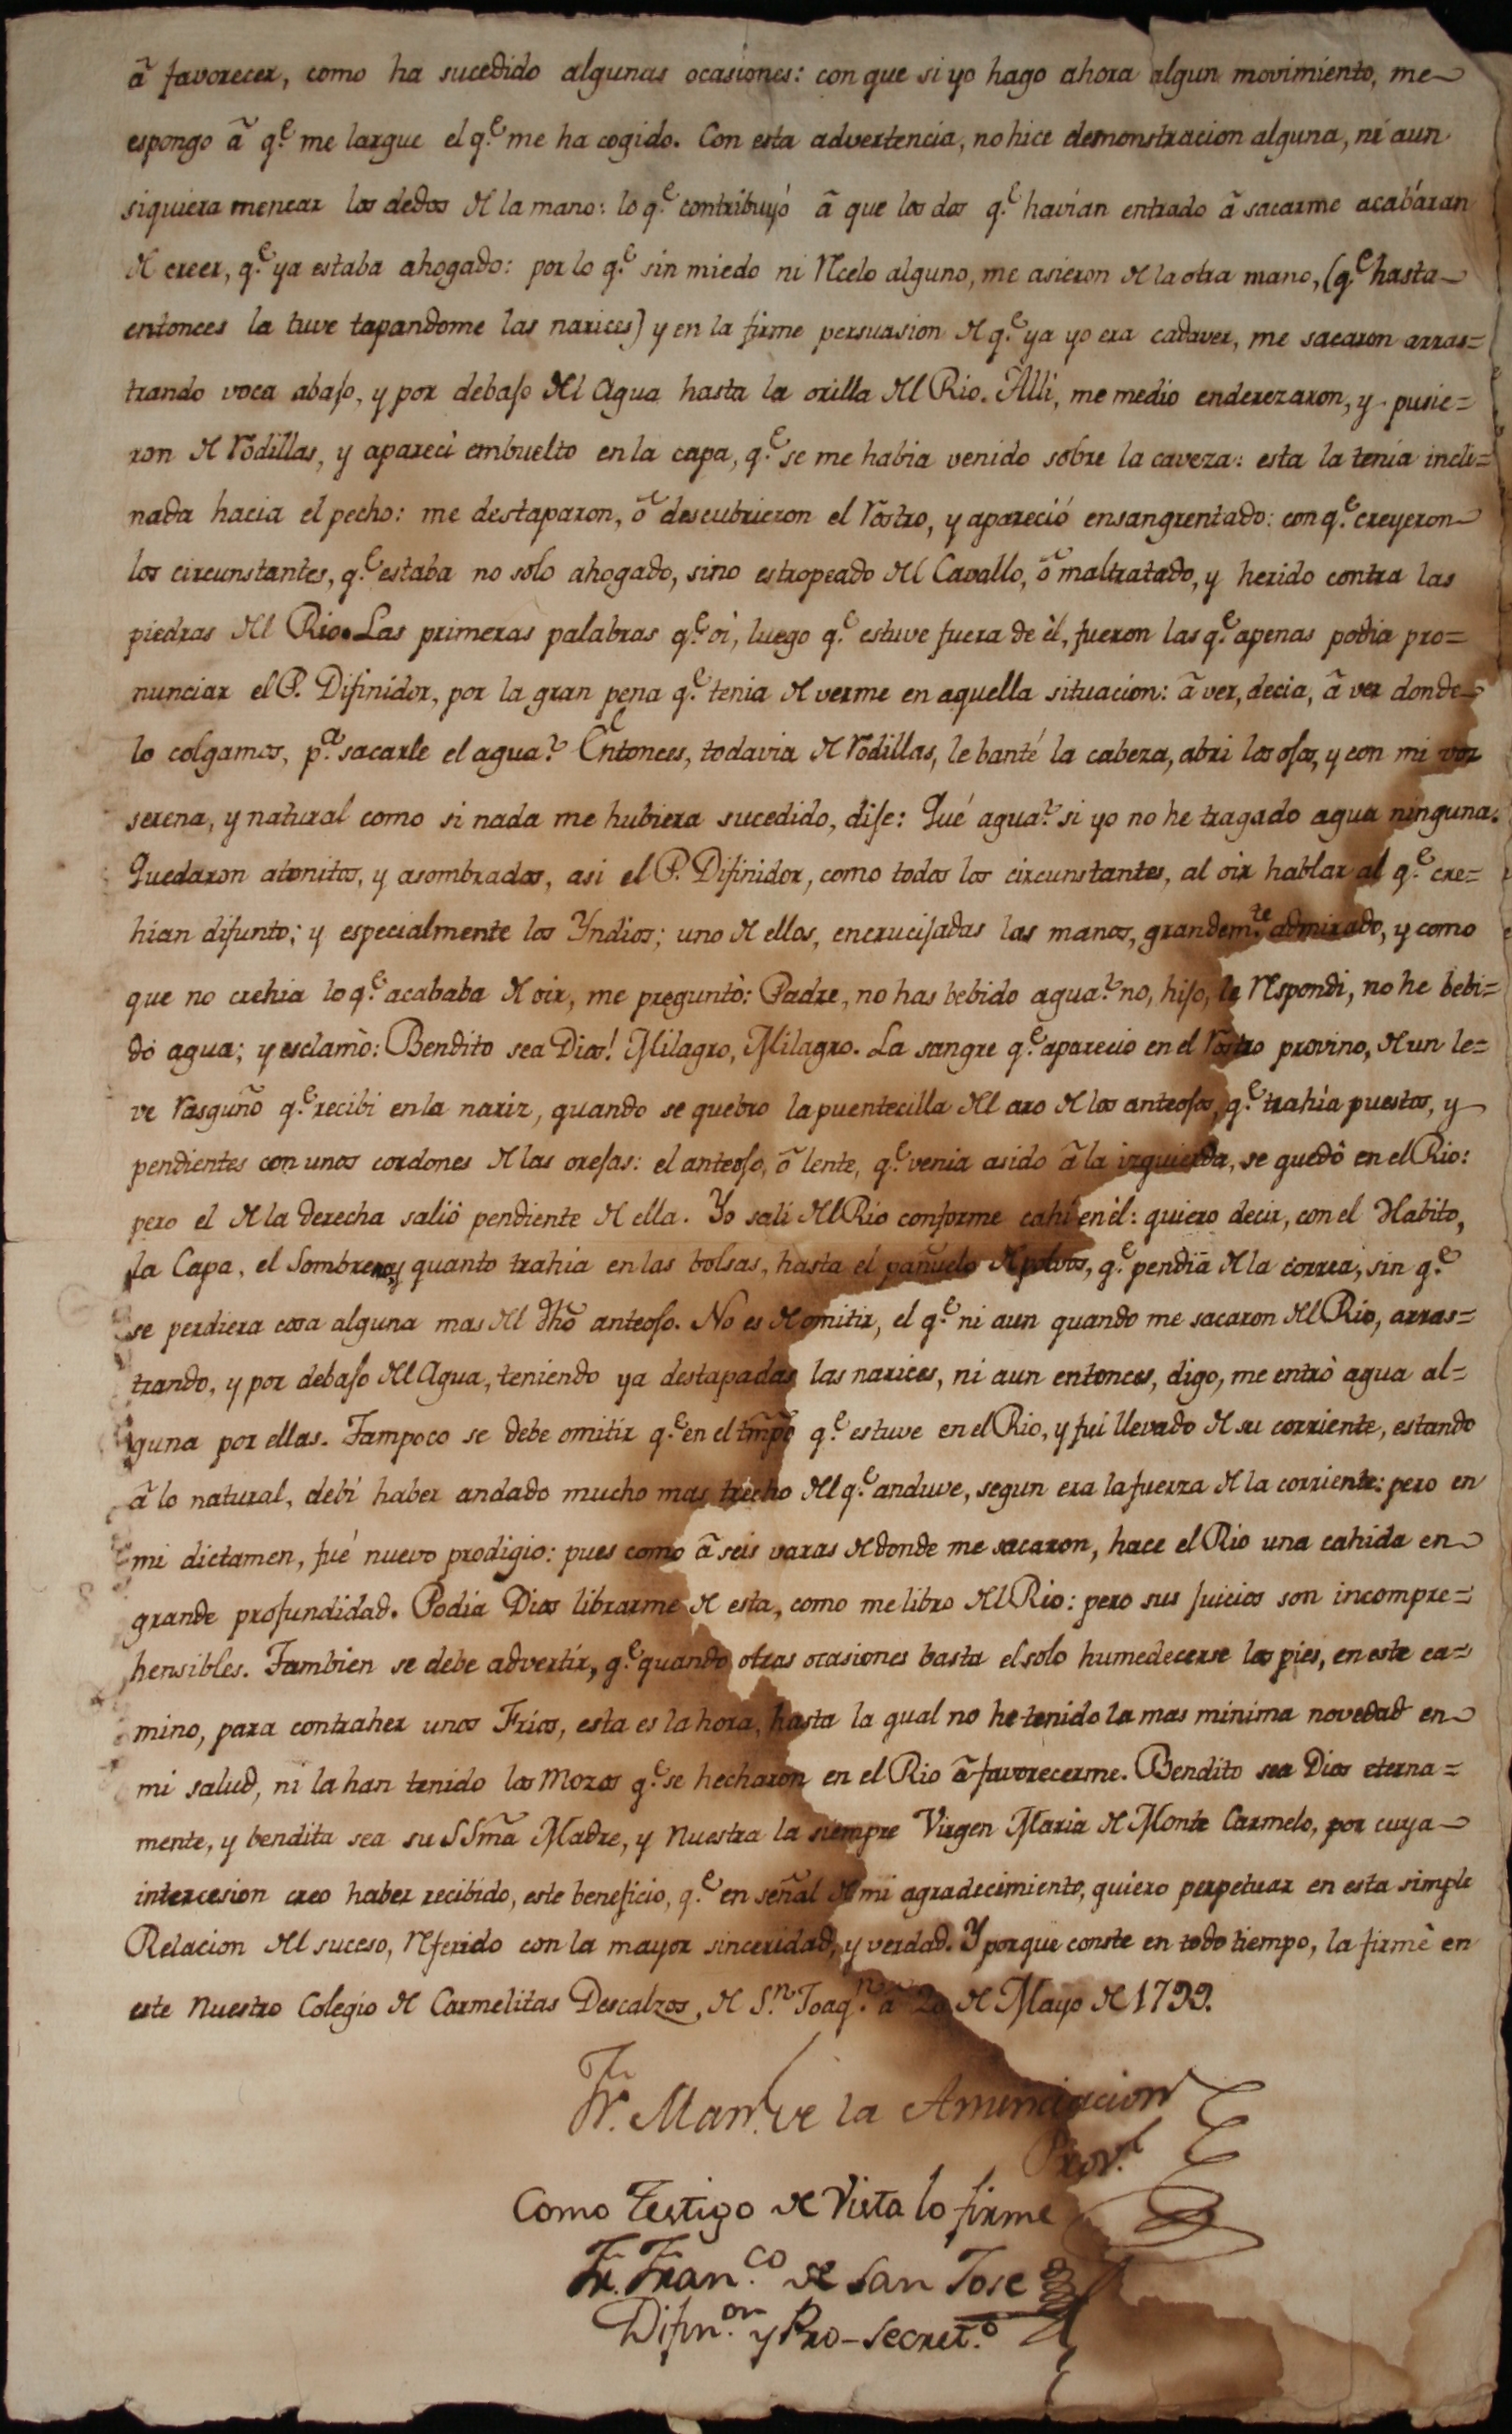 â favorecer, como ha sucedido algunas ocasiones: con que si yo hago ahora algun movimiento, me
espongo â q.e me largue el q.e me ha cogido. Con esta advertencia, no hice demonstracion alguna, ni aun
siquiera menear los dedos de la mano: lo q.e contribuyó â que los dos q.e havían entrado â sacarme acabáran
de creer, q.e ya estaba ahogado: por lo q.e sin miedo ni recelo alguno, me asieron de la otra mano, (q.e hasta
entonces la tuve tapandome las narices) y en la firme persuasion de q.e ya yo era cadaver, me sacaron arras=
trando voca abajo, y por debajo del Agua hasta la orilla del Rio. Alli, me medio enderezaron, y pusie=
ron de rodillas, y aparecì embuelto en la capa, q.e se me habia venido sobre la caveza: esta la tenía incli=
nada hacia el pecho: me destaparon, ô descubrieron el rostro, y apareció ensangrentado: con q.e creyeron
los circunstantes, q.e estaba no solo ahogado, sino estropeado del Cavallo, ô maltratado, y herido contra las
piedras del Rio. Las primeras palabras q.e oì, luego q.e estuve fuera de èl, fueron las q.e apenas podia pro=
nunciar el P. Difinidor, por la gran pena q.e tenia de verme en aquella situacion: â ver, decia, â ver donde
lo colgamos, p.a sacarle el agua? Entonces, todavia de rodillas, lebanté la cabeza, abri los ojos, y con mi voz
serena, y natural como si nada me hubiera sucedido, dije: Qué agua? si yo no he tragado agua ninguna.
Quedaron atonitos, y asombrados, asi el P. Difinidor, como todos los circunstantes, al oir hablar al q.e cre=
hian difunto; y especialmente los Yndios; uno de ellos, encrucijadas las manos, grandem.te admirado, y como
que no crehia lo q.e acababa de oir, me preguntò: Padre, no has bebido agua? no, hijo, le respondi, no he bebi=
do agua; y esclamò: Bendito sea Dios! Milagro, Milagro. La sangre q.e aparecio en el rostro provino, de un le=
ve rasguño q.e recibi en la nariz, quando se quebro la puentecilla del aro de los anteojos, q.e trahia puestos, y
pendientes con unos cordones de las orejas: el anteojo, ô lente, q.e venia asido â la izquierda, se quedó en el Rio:
pero el de la derecha salió pendiente de ella. Yo sali del Rio conforme cahí en èl: quiero decir, con el Habito,
la Capa, el Sombrero, y quanto trahia en las bolsas, hasta el pañuelo de polvos, q.e pendia de la correa, sin q.e
se perdiera cosa alguna mas del dho anteojo. No es de omitir, el q.e ni aun quando me sacaron del Rio, arras=
trando, y por debajo del Agua, teniendo ya destapadas las narices, ni aun entonces, digo, me entrò agua al=
guna por ellas. Tampoco se debe omitir q.e en el tmpo q.e estuve en el Rio, y fui llevado de su corriente, estando
â lo natural, debi haber andado mucho mas trecho del q.e anduve, segun era la fuerza de la corriente: pero en
mi dictamen, fué nuevo prodigio: pues como â seis varas de donde me sacaron, hace el Rio una cahida en
grande profundidad. Podia Dios librarme de esta, como me libro del Rio: pero sus juicios son incompre=
hensibles. Tambien se debe advertir, q.e quando otras ocasiones basta el solo humedecerse los pies, en este ca=
mino, para contraher unos Frios, esta es la hora, hasta la qual no he tenido la mas minima novedad en
mi salud, ni la han tenido los Mozos q.e se hecharon en el Rio â favorecerme. Bendito sea Dios eterna=
mente, y bendita sea su SSma Madre, y Nuestra la siempre Virgen Maria de Monte Carmelo, por cuya
intercesion creo haber recibido, este beneficio, q.e en señal de mi agradecimiento, quiero perpetuar en esta simple
Relacion del suceso, referido con la mayor sinceridad, y verdad. Y porque conste en todo tiempo, la firmè en
este Nuestro Colegio de Carmelitas Descalzos, de S.n Joaq.n â 20 de Mayo de 1799.
Fr. Man.l de la Anunciacion
Prov.l
Como Testigo de Vista lo firme
Fr. Fran.co de San Jose
Difin.or y Pro-Secret.o